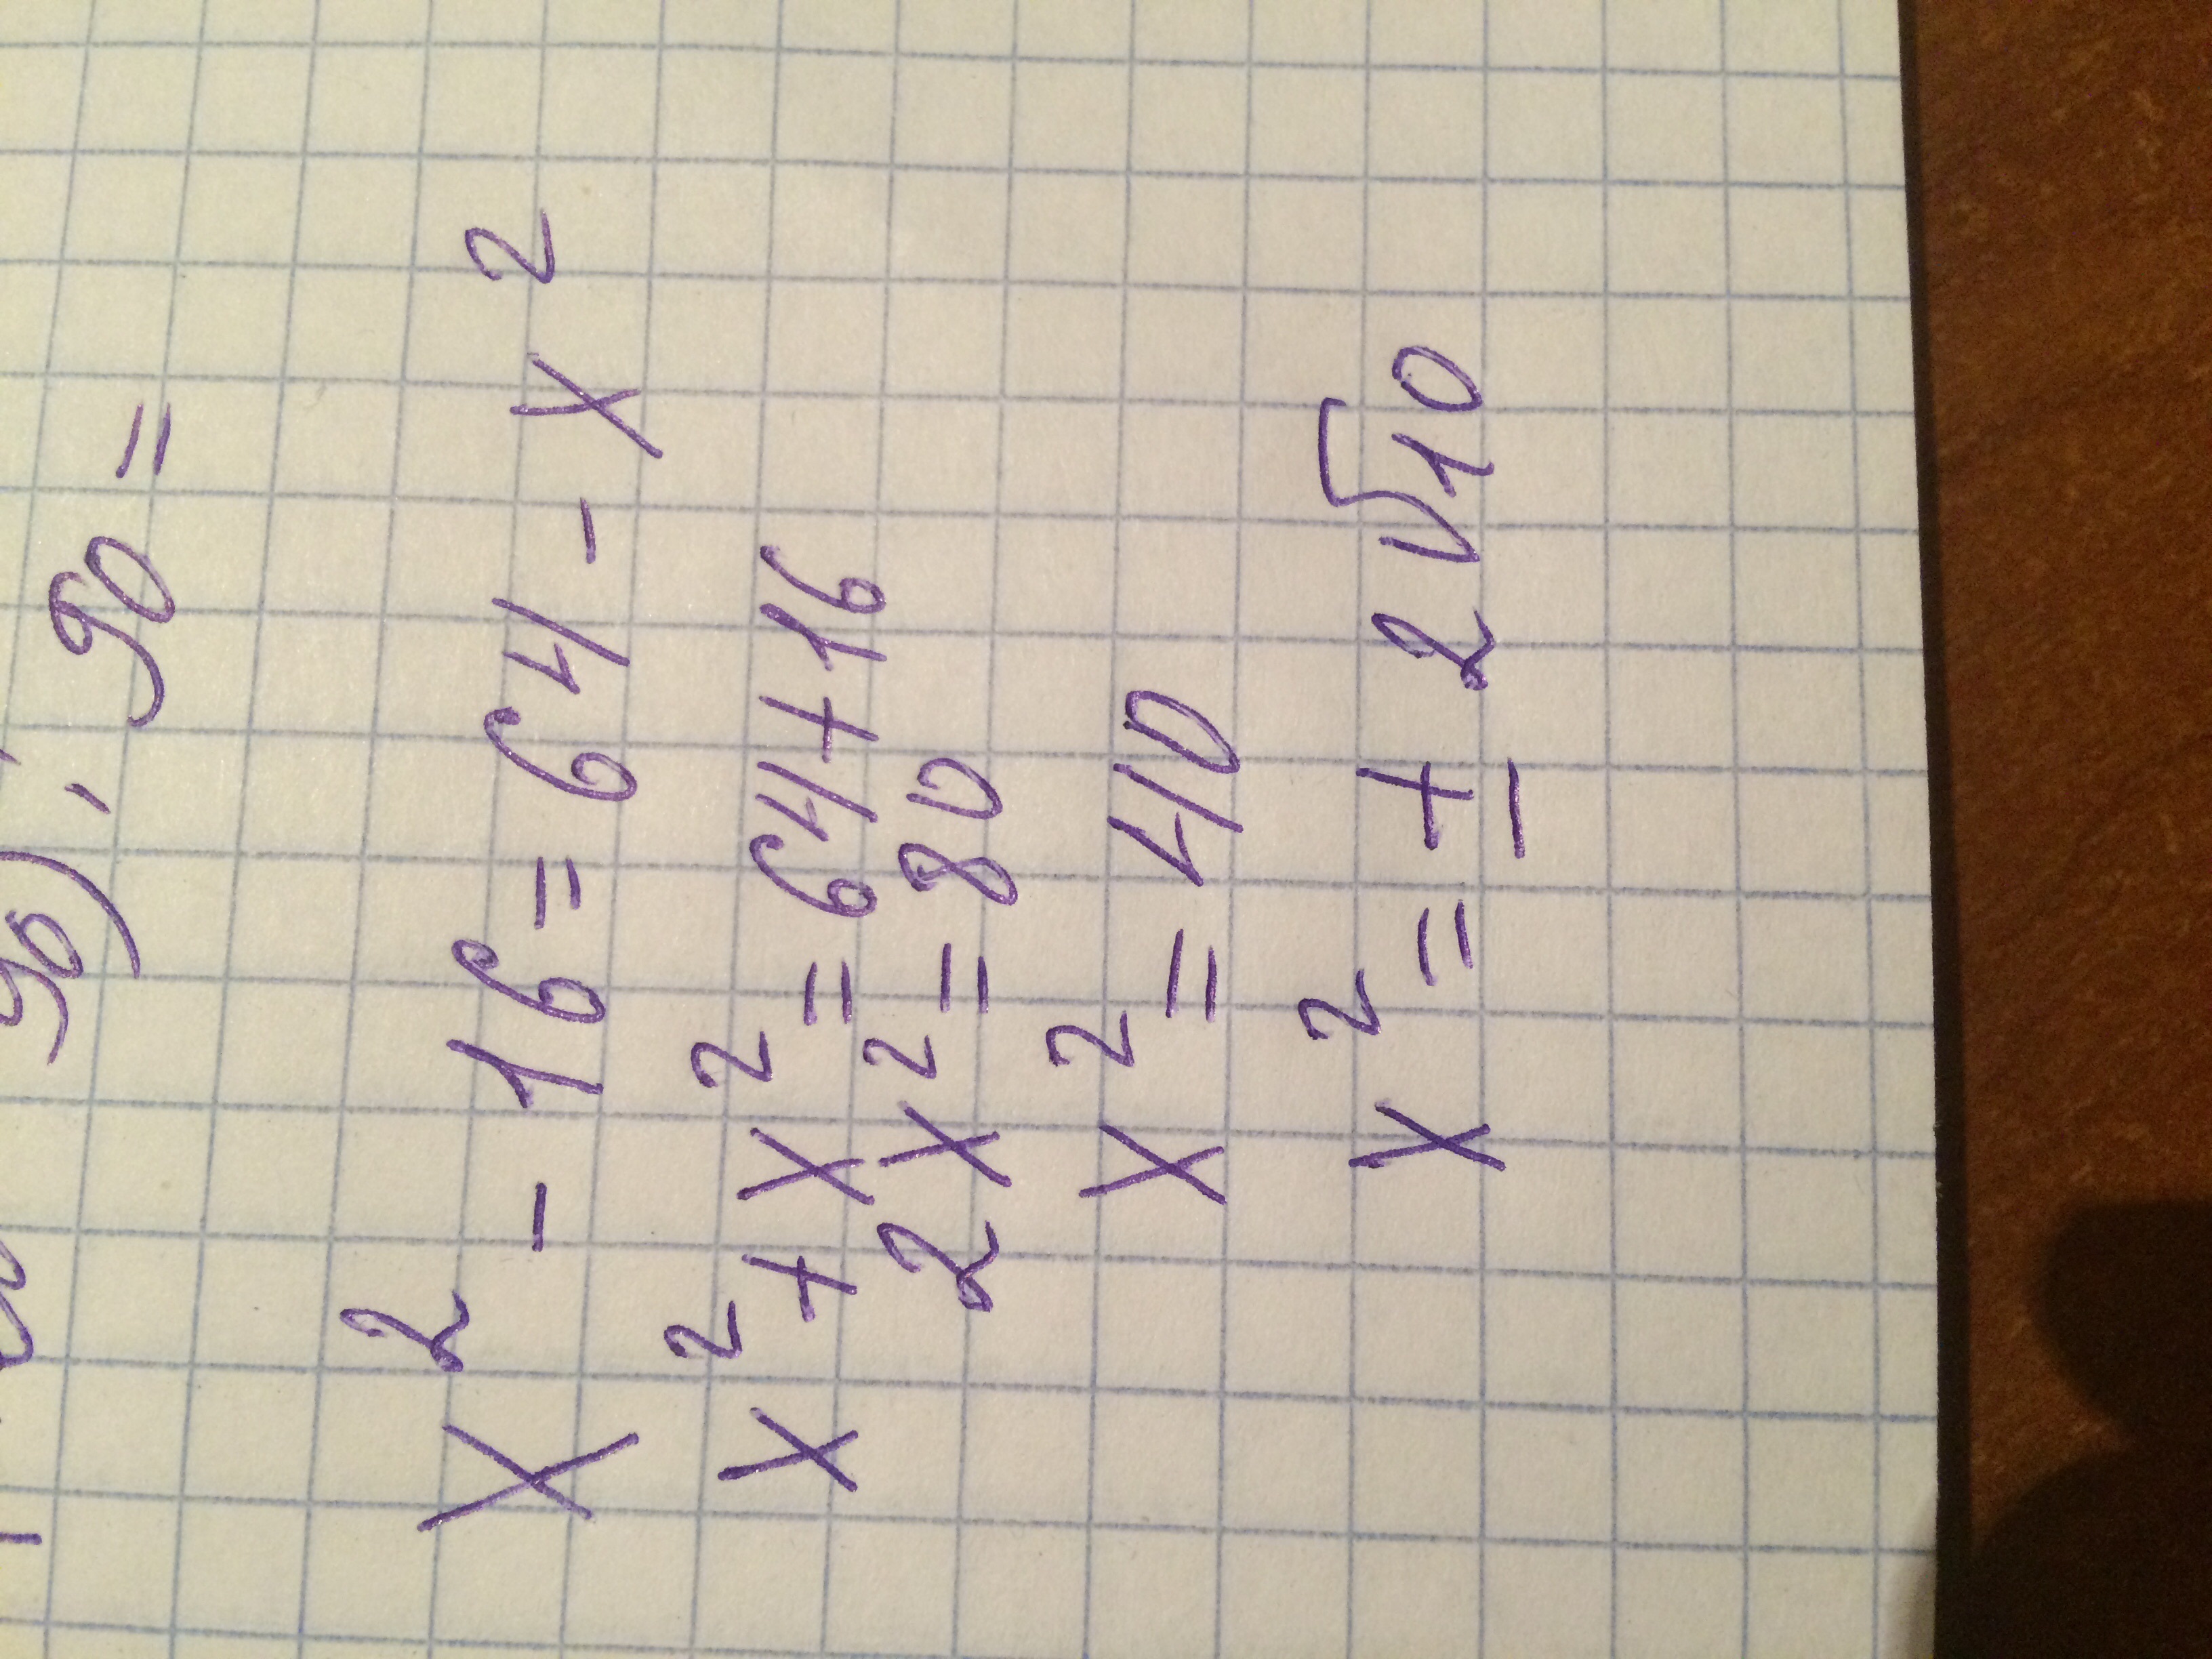 90), 90 =
x² - 16 = 64 - x²
x² + x² = 64 + 16
2x² = 80
x² = 40
x² = ± 2√10